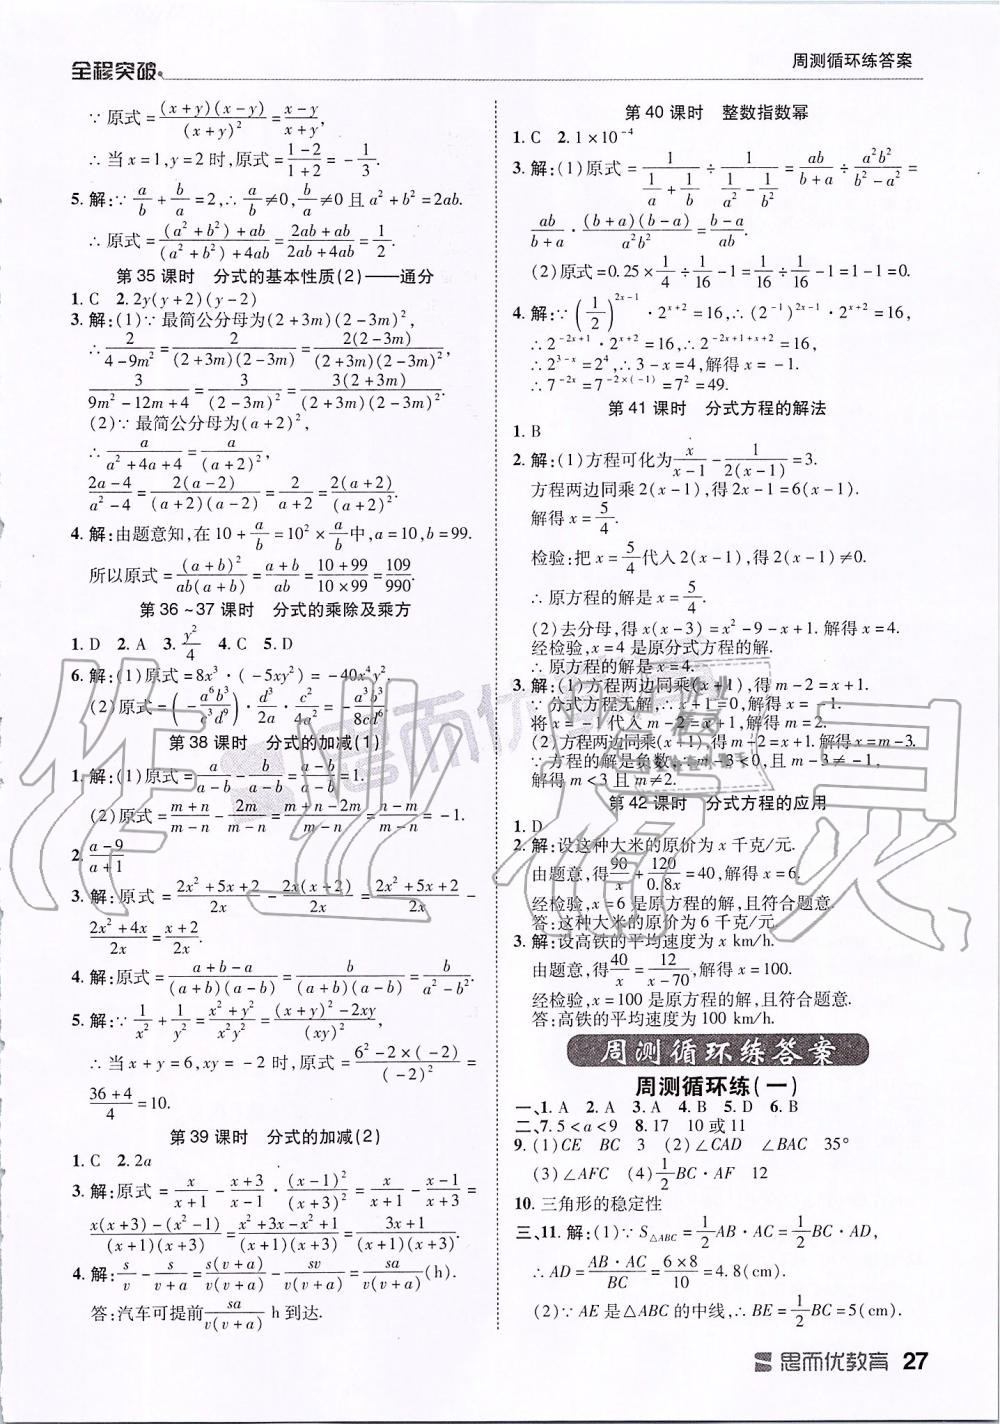 全程突破
周测循环练答案
∵原式=(x+y)(x-y)/(x+y)²=(x-y)/(x+y),
∴当x=1,y=2时,原式=(1-2)/(1+2)=-1/3.
5. 解:∵a/b+b/a=2,∴a/b≠0,b/a≠0且a²+b²=2ab.
∴原式=((a²+b²)+ab)/((a²+b²)+4ab)=(2ab+ab)/(2ab+4ab)=1/2.
第35课时 分式的基本性质(2)——通分
1. C 2. 2y(y+2)(y-2)
3. 解:(1)∵最简公分母为(2+3m)(2-3m)²,
∴2/(4-9m²)=2/((2+3m)(2-3m))=2(2-3m)/((2+3m)(2-3m)²),
3/(9m²-12m+4)=3/(2-3m)²=3(2+3m)/((2+3m)(2-3m)²).
(2)∵最简公分母为(a+2)²,
∴a/(a²+4a+4)=a/(a+2)²,
(2a-4)/(a²-4)=2(a-2)/((a+2)(a-2))=2/(a+2)=2(a+2)/(a+2)².
4. 解:由题意知,在10+a/b=10²×a/b中,a=10,b=99.
所以原式=(a+b)²/(ab(a+b))=(a+b)/ab=(10+99)/(10×99)=109/990.
第36~37课时 分式的乘除及乘方
1. D 2. A 3. y²/4 4. C 5. D
6. 解:(1)原式=8x³·(-5xy²)=-40x⁴y².
(2)原式=(-a⁶b³/c³d⁹)·d³/2a·c²/4a²=-a³b³/8cd⁶.
第38课时 分式的加减(1)
1. 解:(1)原式=a/(a-b)-b/(a-b)=(a-b)/(a-b)=1.
(2)原式=(m+n)/(m-n)-2m/(m-n)=(m+n-2m)/(m-n)=(n-m)/(m-n)=-1.
2. (a-9)/(a+1)
3. 解:原式=(2x²+5x+2)/2x-2x(x+2)/2x=(2x²+5x+2)/2x-
(2x²+4x)/2x=(x+2)/2x.
4. 解:原式=(a+b-a)/((a+b)(a-b))=b/((a+b)(a-b))=b/(a²-b²).
5. 解:∵1/x²+1/y²=(x²+y²)/x²y²=((x+y)²-2xy)/(xy)²,
∴当x+y=6,xy=-2时,原式=(6²-2×(-2))/(-2)²=
(36+4)/4=10.
第39课时 分式的加减(2)
1. C 2. 2a
3. 解:原式=x/(x+1)-(x+3)/(x-1)·(x-1)²/(x+3)²=x/(x+1)-(x-1)/(x+3)=
(x(x+3)-(x²-1))/((x+1)(x+3))=(x²+3x-x²+1)/((x+1)(x+3))=(3x+1)/((x+1)(x+3)).
4. 解:s/v-s/(v+a)=s(v+a)/(v(v+a))-sv/(v(v+a))=sa/(v(v+a))(h).
答:汽车可提前sa/(v(v+a)) h到达.
第40课时 整数指数幂
1. C 2. 1×10⁻⁴
3. 解:(1)原式=1/(1/a+1/b)÷1/(1/a²-1/b²)=ab/(b+a)÷a²b²/(b²-a²)=
ab/(b+a)·(b+a)(b-a)/a²b²=(b-a)/ab.
(2)原式=0.25×1/4÷1/16-1=1/16÷1/16-1=1-1=0.
4. 解:∵(1/2)²ˣ⁻¹·2ˣ⁺²=16,∴(2⁻¹)²ˣ⁻¹·2ˣ⁺²=16,
∴2⁻²ˣ⁺¹·2ˣ⁺²=16,∴2⁻²ˣ⁺¹⁺ˣ⁺²=16,
∴2³⁻ˣ=2⁴,∴3-x=4,解得x=-1.
∴7⁻²ˣ=7⁻²ˣ⁽⁻¹⁾=7²=49.
第41课时 分式方程的解法
1. B
2. 解:(1)方程可化为x/(x-1)-1/(2(x-1))=3.
方程两边同乘2(x-1),得2x-1=6(x-1).
解得x=5/4.
检验:把x=5/4代入2(x-1),得2(x-1)≠0.
∴原方程的解是x=5/4.
(2)去分母,得x(x-3)=x²-9-x+1.解得x=4.
经检验,x=4是原分式方程的解.
∴原方程的解是x=4.
3. 解:(1)方程两边同乘(x+1),得m-2=x+1.
∵分式方程无解,∴x+1=0,解得x=-1.
将x=-1代入m-2=x+1,解得m=2.
(2)方程两边同乘(x+1),得m-2=x+1.解得x=m-3.
∵方程的解是负数,∴m-3<0,解得m<3.
解得m<3且m≠2.
第42课时 分式方程的应用
1. D
2. 解:设这种大米的原价为x千克/元.
由题意,得90/x+120/0.8x=40,解得x=6.
经检验,x=6是原方程的解,且符合题意.
答:这种大米的原价为6千克/元.
3. 解:设高铁的平均速度为x km/h.
由题意,得40/x=12/(x-70),解得x=100.
经检验,x=100是原方程的解,且符合题意.
答:高铁的平均速度为100 km/h.
周测循环练答案
周测循环练(一)
一、1. A 2. A 3. A 4. B 5. D 6. B
二、7. 5<a<9 8. 17 10或11
9. (1)CE BC 3 (2)∠CAD ∠BAC 35°
(3)∠AFC (4)1/2BC·AF 12
10. 三角形的稳定性
三、11. 解:(1)∵S△ABC=1/2AB·AC=1/2BC·AD,
∴AD=AB·AC/BC=6×8/10=4.8(cm).
(2)∵AE是△ABC的中线,∴BE=1/2BC=5(cm).
思而优教育 27
作业精灵